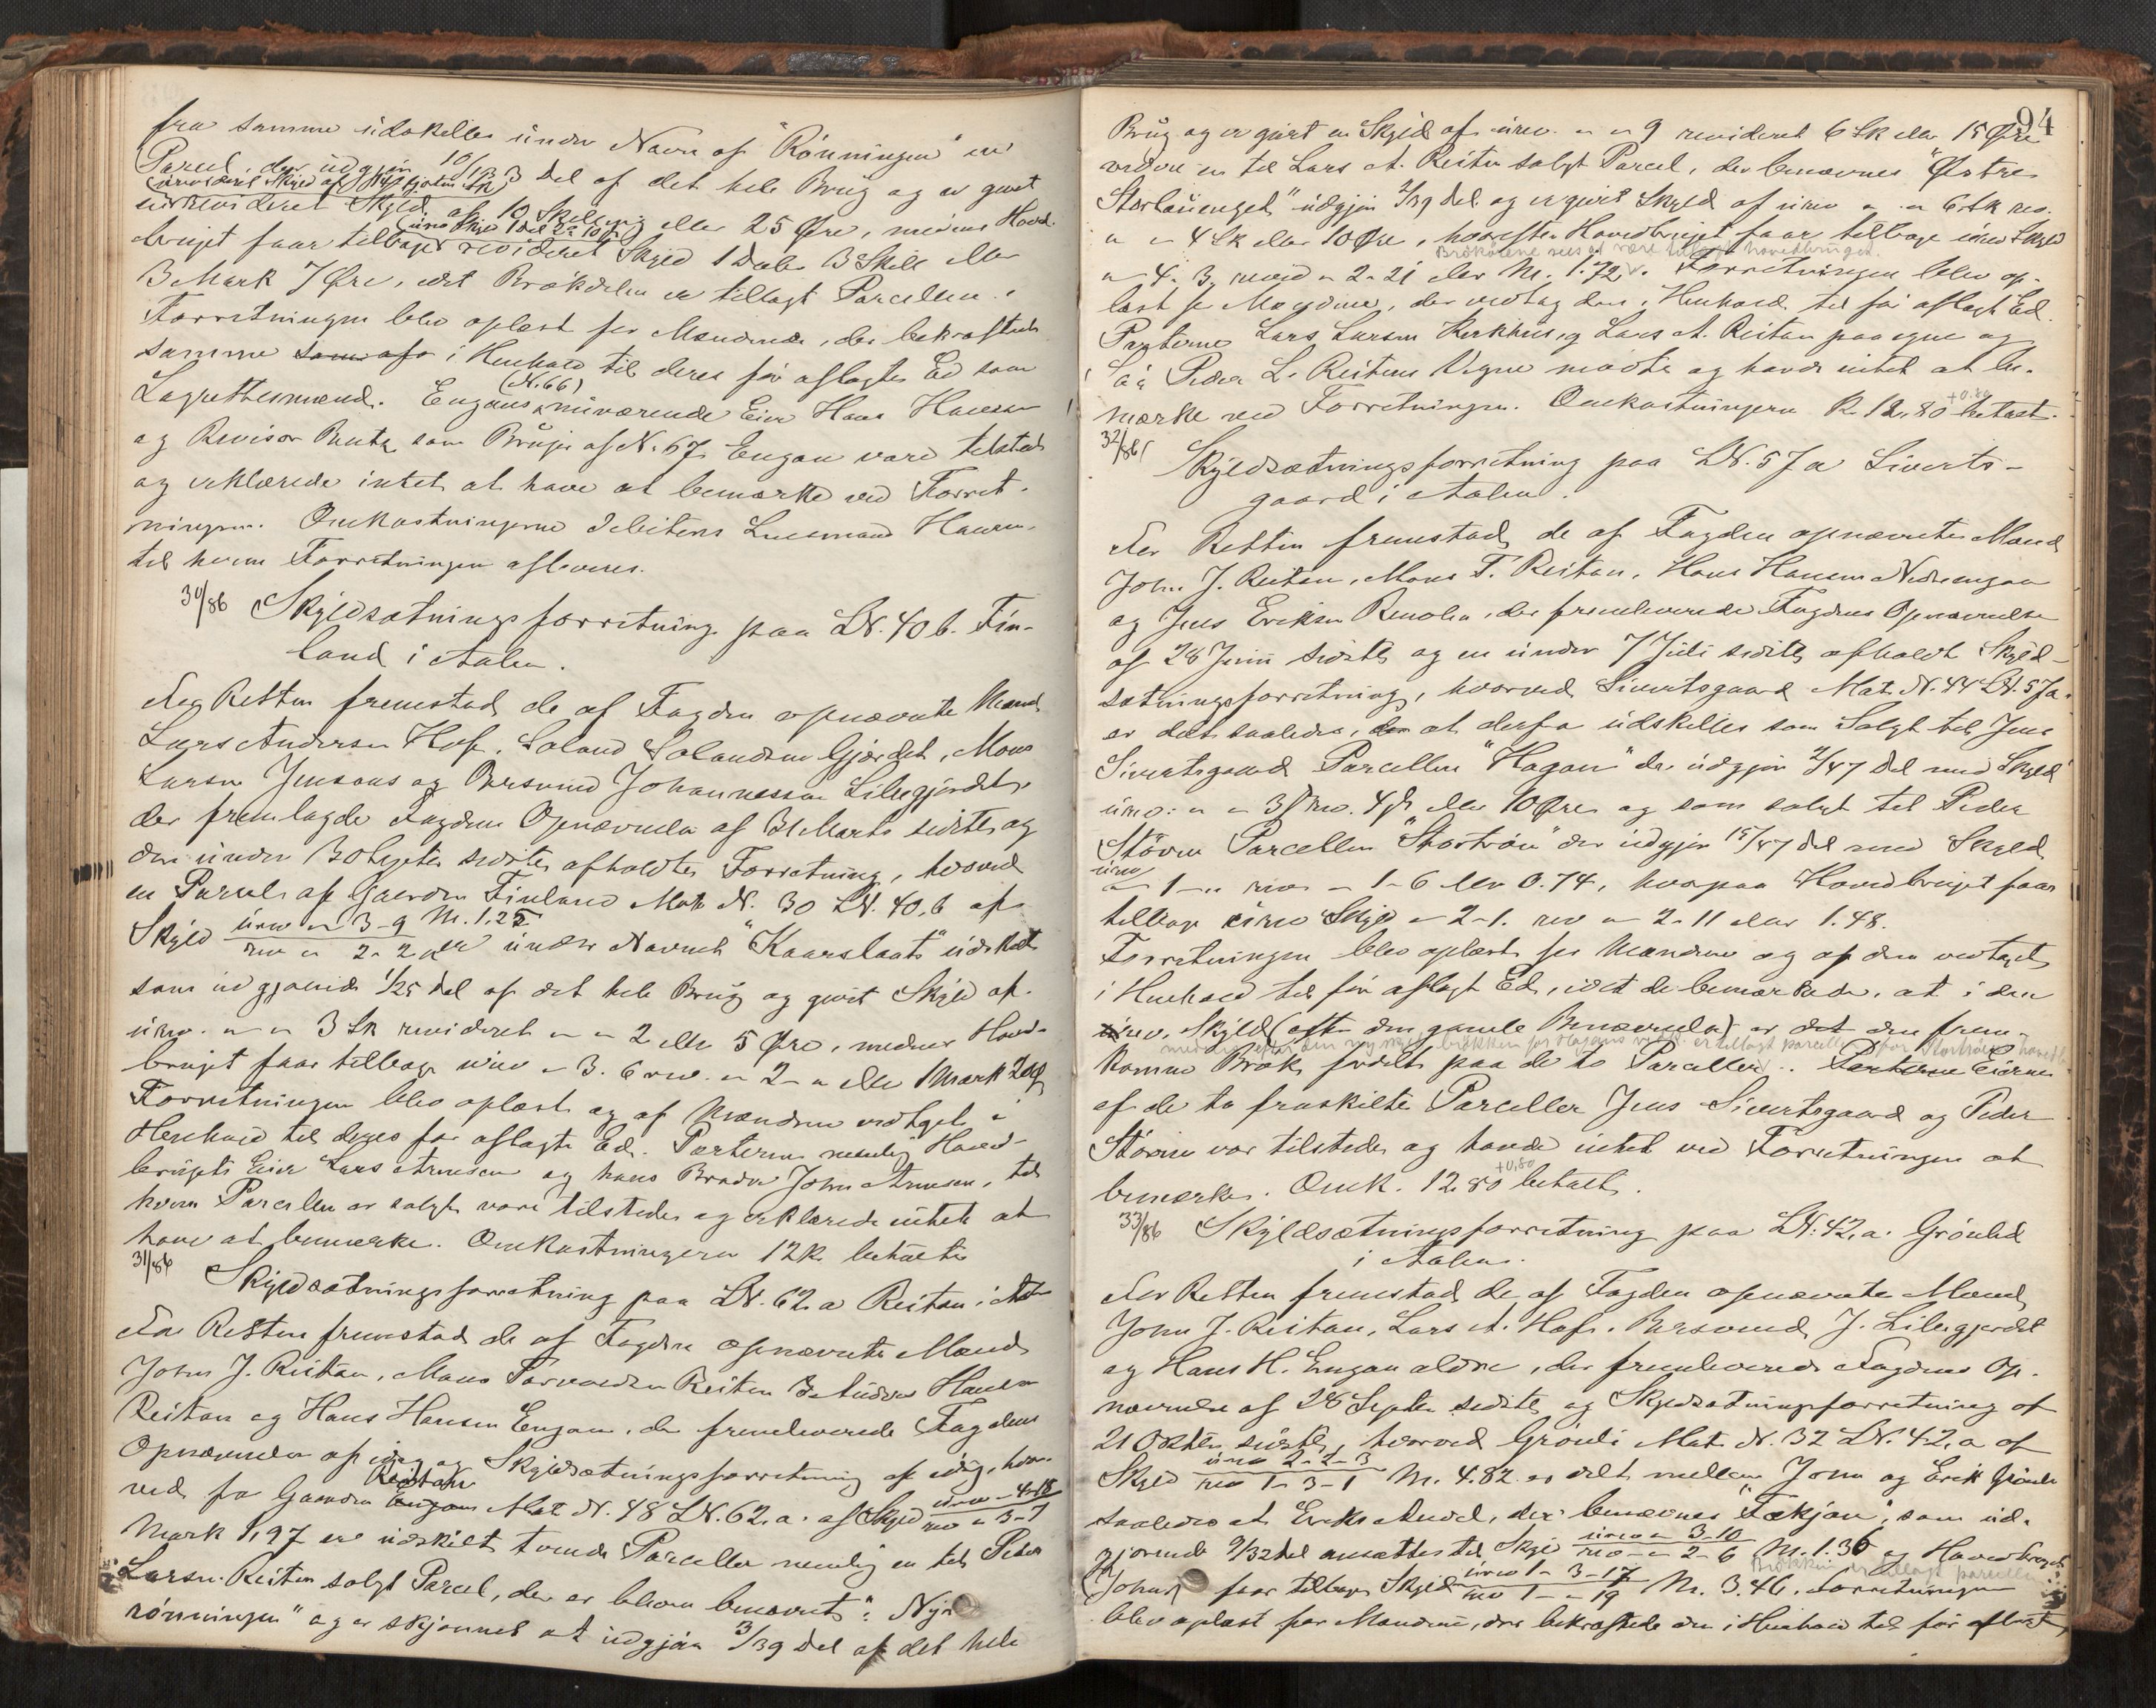 fra samme udskilles under Navn af "Rönningen" en
Parcel, der udgjör 10/133 Del af det hele Brug og er givet
(urevideret Skyld af
urevideret Skyld af 10 Skilling eller 25 Øre, medens Hoved-
bruget faar tilbage revideret Skyld 1 Daler 3 Skill eller
3 Mark 7 Øre, idet Brökdelen er tillagt Parcellen.
Forretningen blev oplæst for Mændene, der bekræftede
samme i Henhold til deres för aflagte Ed som
Lagrettesmænd. Engans (N. 66) nuværende Eier Hans Hansen
og Revisor som Bruger af N. 67 Engan vare tilstede
og erklærede intet at have at bemærke ved Forret-
ningen. Omkostningerne debiteres Lensmand
til hvem Forretningen afleveres.
30/86 Skyldsætningsforretning paa LN. 40 b. Fin-
land i Aalen.
For Retten fremstod de af Fogden opnævnte Mænd
Lars Andersen Hof, Esaund Gjærdet, Mons
Larsen Jensaas og Johannessen Lillegjærdet,
der fremlagde Fogdens Opnævnelse af 31 Marts sidstl. og
den under 30 sidstl. afholdte Forretning, hvorved
en Parcel af Gaarden Finland Mat. N. 30 LN. 40, b af
Skyld urev " 3-9 M. 1.25
rev " 2-2 er under Navnet "Kaarslaat" udskilt
som udgjörende 1/25 Del af det hele Brug og givet Skyld af
urev. " " 3 Sk revideret " " 2 eller 5 Øre, medens Hoved-
bruget faar tilbage urev " 3. 6 rev. " 2 - " eller 1 Mark 20 Ø.
Forretningen blev oplæst og af Mændene vedtaget i
Henhold til deres för aflagte Ed. Parterne nemlig Hoved-
brugets Eier Lars Arnesen og hans Broder John Arnesen, til
hvem Parcellen er solgt vare tilstede og erklærede intet at
have at bemærke. Omkostningerne 12 K. betalte
31/86 Skyldsætningsforretning paa LN. 62. a Reitan i Aalen
For Retten fremstod de af Fogden opnævnte Mænd
John J. Reitan, Mons Torvaldsen Reitan Anders Hansen
Reitan og Hans Hansen Engan, der fremleverede Fogdens
Opnævnelse af idag og Skyldsætningsforretning af idag, hvor-
ved fra Gaarden Reitan Mat N. 48 LN. 62. a. af Skyld urev - 4-18
rev " 3-7
Mark 1,97 er udskilt tvende Parceller nemlig en til Peder
Larsen Reitan solgt Parcel, der er bleven benævnt: "Ny-
rönningen" og er skjönnet at udgjöre 3/39 Del af det hele
94
Brug og er givet en Skyld af urev. " " 9 revideret 6 Sk eller 15 Øre
videre en til Lars A. Reitan solgt Parcel, der benævnes "Østre
Storlauenget" udgjör 2/39 Del og er givet Skyld af urev " " 6 Sk rev.
" " 4 Sk eller 10 Øre, hvorefter Hovedbruget faar tilbage urev Skyld
Brökdelene sees at være tillagt hovedbruget.
" 4. 3, revid " 2-21 eller M. 1.72. Forretningen blev op-
læst for Mændene, der vedtog den i Henhold til för aflagt Ed.
Parterne Lars Larsen Kirkhus, og Lars A. Reitan paa egne og
paa Peder L. Reitans Vegne mödte og havde intet at be-
mærke ved Forretningen. Omkostningerne K. 12,80 +0.80 betalt.
32/86 Skyldsætningsforretning paa LN. 57 a Siverts-
gaard i Aalen.
For Retten fremstod de af Fogden opnævnte Mænd
John J. Reitan, Mons T. Reitan, Hans Hansen Nedreengan
og Jens Eriksen Renolen, der fremleverede Fogdens Opnævnelse
af 28 Juni sidstl. og en under 7 Juli sidstl. afholdt Skyld-
sætningsforretning, hvorved Sivertsgaard Mat. N. 44 LN. 57a.
er delt saaledes, at derfra udskilles som Solgt til Jens
Sivertsgaard Parcellen "Hagan" der udgjör 2/47 Del med Skyld
urev: " " 3 rev. 4 ß eller 10 Øre og som solgt til Peder
Stövne Parcellen "Stortröen" der udgjör 15/47 Del med Skyld
urev
" 1-" rev - 1-6 eller 0.74, hvorpaa Hovedbruget faar
tilbage urev Skyld " 2-1. rev " 2-11 eller 1.48.
Forretningen blev oplæst for Mændene og af dem vedtaget
i Henhold til för aflagt Ed, idet de bemærkede, at i den
urev. Skyld (efter den gamle Benævnelse) er den frem-
medens efter den ny skyld brökken for Hagans vedk. er tillagt parcellen for Stortröen hovedbr.
komne Brök fordelt paa de to Parceller. Eierne
af de to fraskilte Parceller Jens Sivertsgaard og Peder
Stövne var tilstede og havde intet ved Forretningen at
bemærke. Omk. 12.80 +0,80 betalt.
33/86 Skyldsætningsforretning paa LN. 42, a. Gröuli
i Aalen.
For Retten fremstod de af Fogden opnævnte Mænd
John J. Reitan, Lars A. Hof, J. Lillegjerdet
og Hans H. Engan ældre, der fremleverede Fogdens Op-
nævnelse af 28 Septbr sidstl. og Skyldsætningsforretning af
21 Oktbr. sidstl., hvorved Gröuli Mat. N. 32 LN. 42, a af
Skyld urev 2-2-3
rev 1-3-1 M. 4.82 er delt mellem John og Erik Gröuli
saaledes at Eriks Andel, der benævnes "Tækjan", som ud-
gjörende 9/32 Del ansættes til Skyld urev " 3-10
rev - " 2-6 M. 1.36 og Hovedbruget
Brökken er tillagt parcellen
(Johns) faar tilbage Skyld urev 1-3-17
rev 1-"-19 M. 3.46. Forretningen
blev oplæst for Mændene, der bekræftede den i Henhold til för aflagt